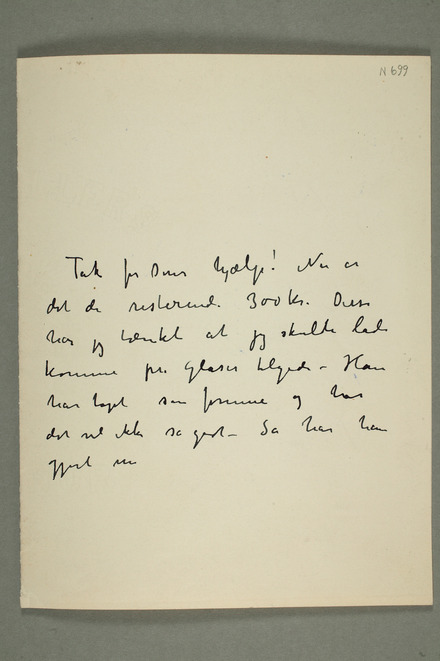 N 699
Tak for Deres hjælp! Nu er
det de resterende 300 kr. Disse
har jeg tænkt at jeg skulde lade
komme på Glaser tilgode – Han
har tapt sin formue og har
det vel ikke så godt – Så har han
gjort